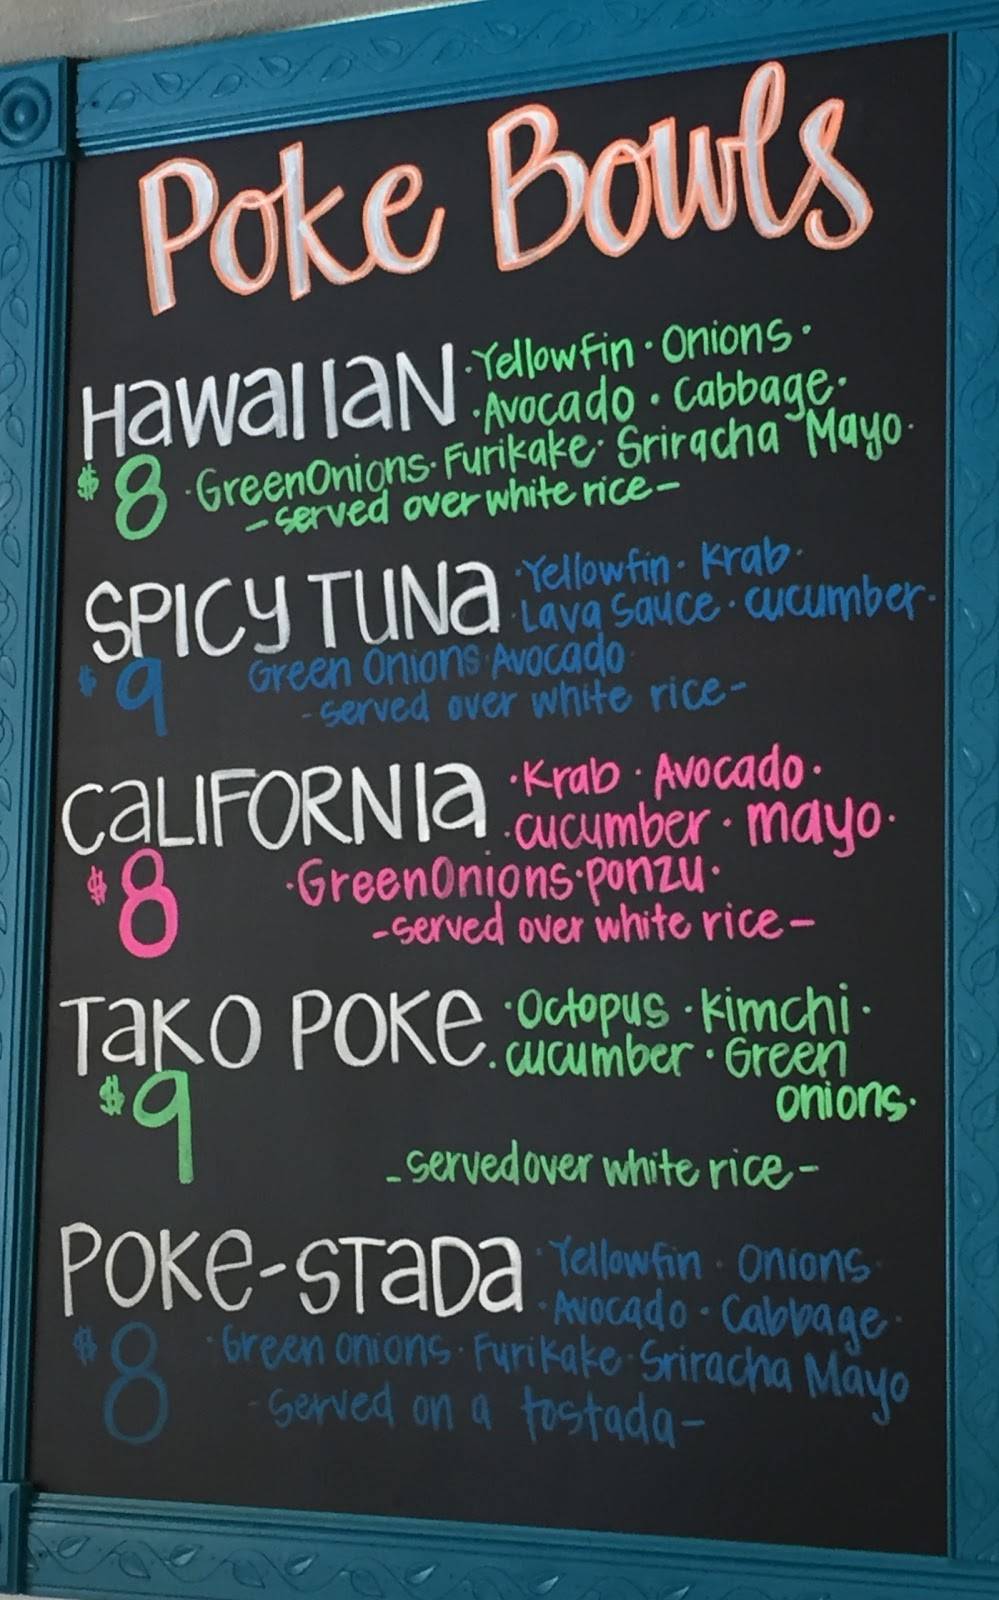 Poke Bowls
HawaiiaN ·Yellowfin · Onions ·
·Avocado · Cabbage·
$8 ·GreenOnions· Furikake· Sriracha Mayo·
-served over white rice-
SPICY TUNa ·Yellowfin· Krab·
·Lava Sauce · cucumber·
$9 Green Onions·Avocado·
-served over white rice-
CaLIFORNIa ·Krab · Avocado·
·cucumber · mayo·
$8 ·GreenOnions·ponzu·
-served over white rice-
TaKO POKe ·Octopus ·kimchi·
·cucumber · Green
$9 onions·
-served over white rice-
POKe-STaDa ·Yellowfin · Onions·
·Avocado · Cabbage·
$8 ·Green onions· Furikake·Sriracha Mayo
-Served on a tostada-